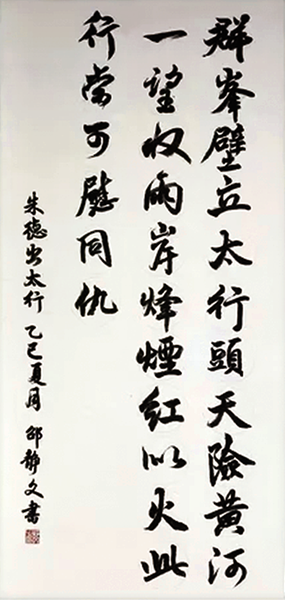 群峯壁立太行頭天險黃河
一望收兩岸烽煙紅似火此
行當可慰同仇
朱德出太行 乙巳夏月 邵靜文書